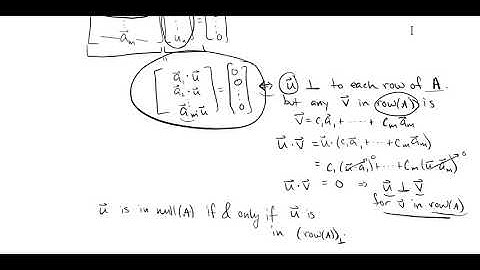 a⃗ₘ uₙ = 0
[ a⃗₁·u⃗ ] [ 0 ] ⇔ u⃗ ⊥ to each row of A.
[ a⃗₂·u⃗ ] = [ 0 ] but any v⃗ in row(A) is
[ ⋮ ] [ ⋮ ] v⃗ = c₁a⃗₁ + ···· + cₘa⃗ₘ
[ a⃗ₘ·u⃗ ] [ 0 ]
u⃗·v⃗ = u⃗·(c₁a⃗₁ + ···· + cₘa⃗ₘ)
= c₁(u⃗·a⃗₁)⁰ + ··· + cₘ(u⃗·a⃗ₘ)⁰
u⃗·v⃗ = 0 ⇒ u⃗ ⊥ v⃗
for v⃗ in row(A)
u⃗ is in null(A) if & only if u⃗ is
in (row(A))⊥.